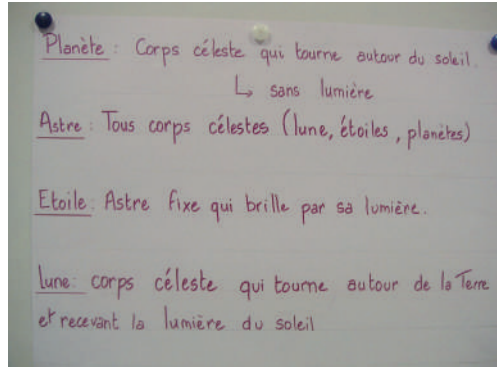 Planète : Corps céleste qui tourne autour du soleil.
↳ sans lumière
Astre : Tous corps célestes (lune, étoiles, planètes)
Etoile : Astre fixe qui brille par sa lumière.
Lune : corps céleste qui tourne autour de la Terre
et recevant la lumière du soleil